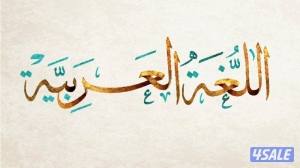 اللُّغَةُ العَرَبِيَّة
4SALE